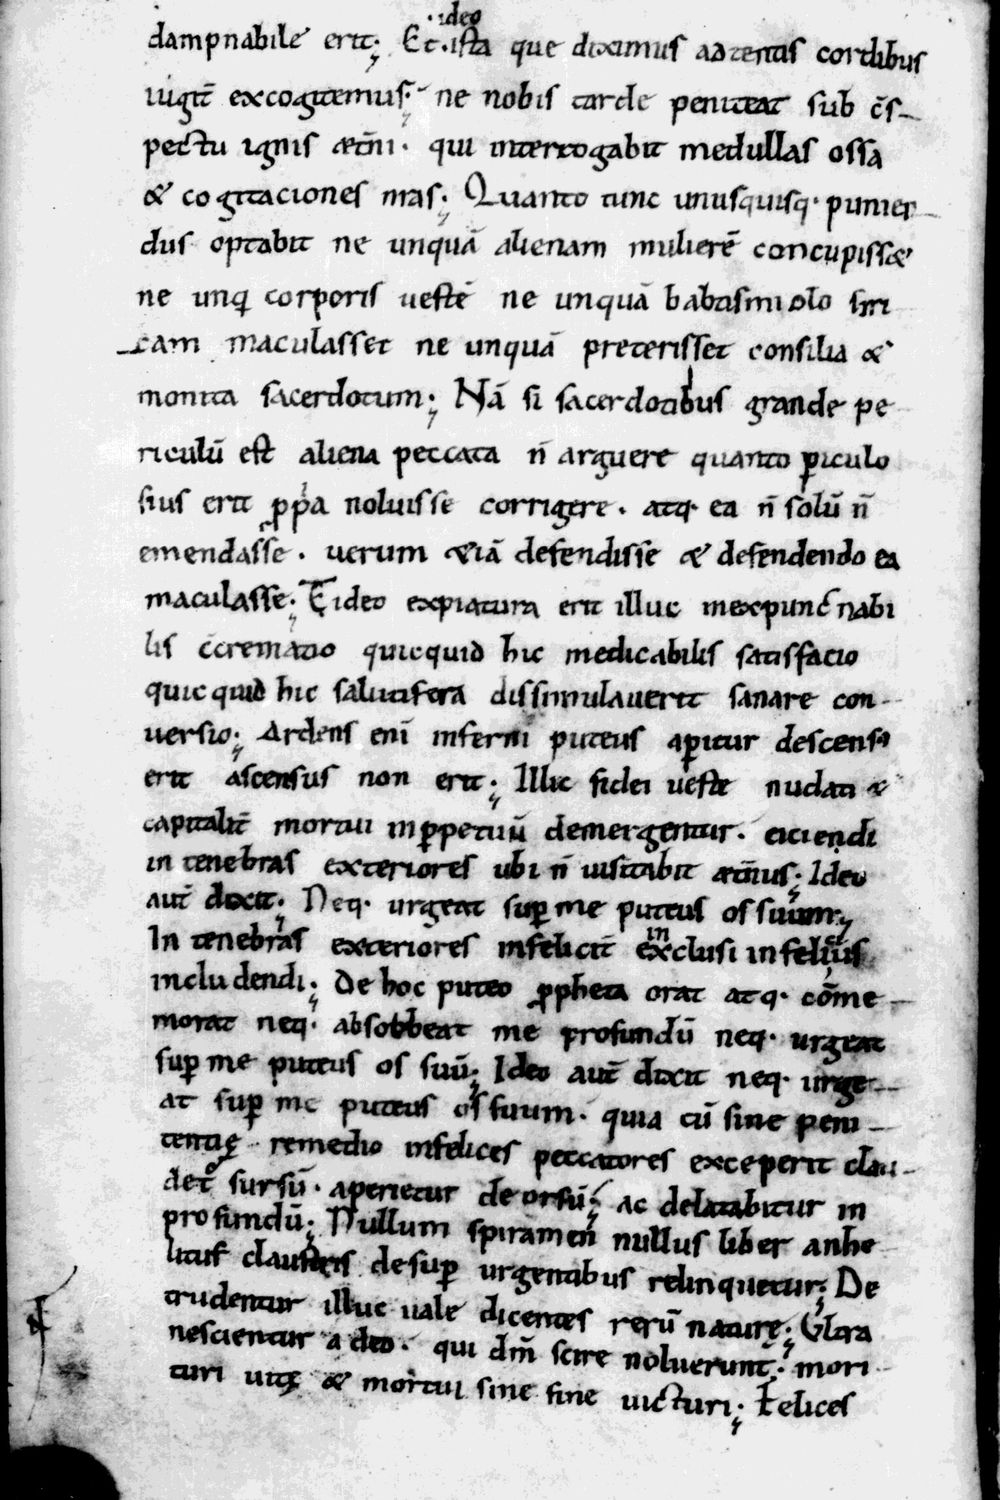 dampnabile erit; Et ·ideo· ista que diximus adtentis cordibus
iugit̄ excogitemus; ne nobis tarde peniteat sub c̄s-
pectu ignis æt̄ni· qui interrogabit medullas ossa
& cogitaciones n̄ras; Quanto tunc unusquisq· punien-
dus optabit ne unquā alienam mulierē concupissæ
ne unq̄ corporis uestē ne unquā babtismi olo siri
cam maculasset ne unquā preterisset consilia &
monita sacerdotum; Nā si sacerdotibus grande pe
riculū est aliena peccata n̄ arguere quanto ꝑiculo
sius erit ꝓpͥa noluisse corrigere· atq· ea n̄ solū n̄
emendasse· uerum &iā defendisse & defendendo ea
maculasse; Et ideo expiatura erit illuc inexpunc̄nabi
lis c̄crematio quicquid hic medicabilis satisfacio
quicquid hic salutifera dissimulauerit sanare con-
uersio; Ardens enī inferni puteus aꝑitur descensꝰ
erit ascensus non erit; Illic fidei ueste nudati &
capitalit̄ mortui inꝑpetuū demergentur· eiciendi
in tenebras exteriores ubi n̄ uisitabit æt̄nus; Ideo
aut̄ dixit; Neq· urgeat suꝑ me puteus os suum;
In tenebras exteriores infelicit̄ in exclusi infelicius
includendi; De hoc puteo ꝓpheta orat atq· cōme-
morat neq· absobbeat me profundū neq· urgeat
suꝑ me puteus os suū; Ideo aut̄ dixit neq· urge-
at suꝑ me puteus os suum· quia cū sine peni-
tentię remedio infelices peccatores exceperit clau-
det̄ sursū· aperietur deorsū; ac delatabitur in
profundū; Nullum spiramen̄ nullus liber anhe
litus claustris desuꝑ urgentibus relinquetur; De
trudentur illuc uale dicentes rerū naturę; Ultra
nescientur a deo· qui dm̄ scire noluerunt; mori
turi uitę & mortui sine fine uicturi; Felices